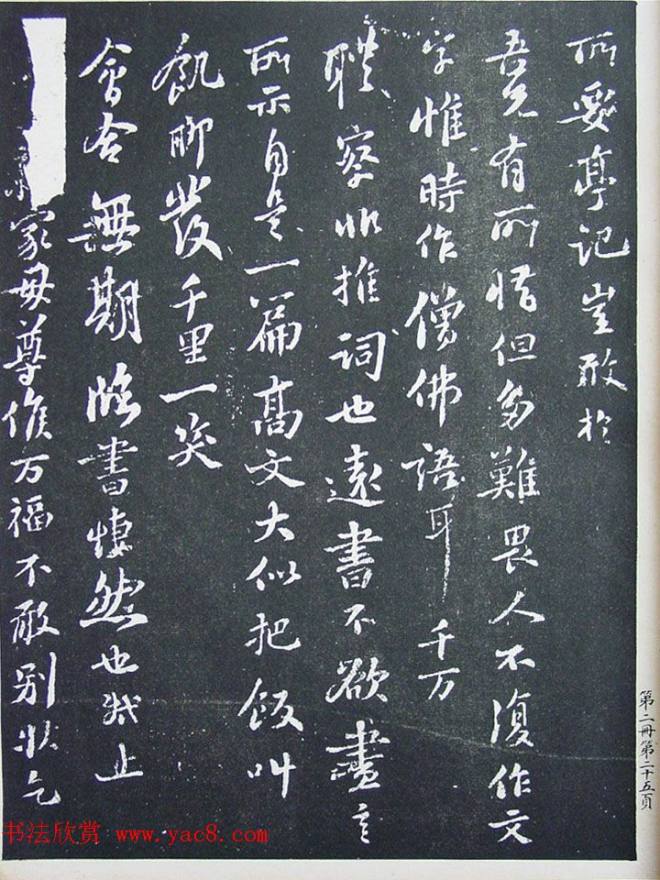 所要亭記豈敢於
吾兄有所惜但多難畏人不復作文
字惟時作僧佛語耳千万
軆察非推詞也遠書不欲盡言
所示自是一篇高文大似把飯叫
飢聊發千里一笑
會合無期臨書悽然也止
家母尊候万福不敢别狀乞
第二冊第二十五頁
书法欣赏 www.yac8.com